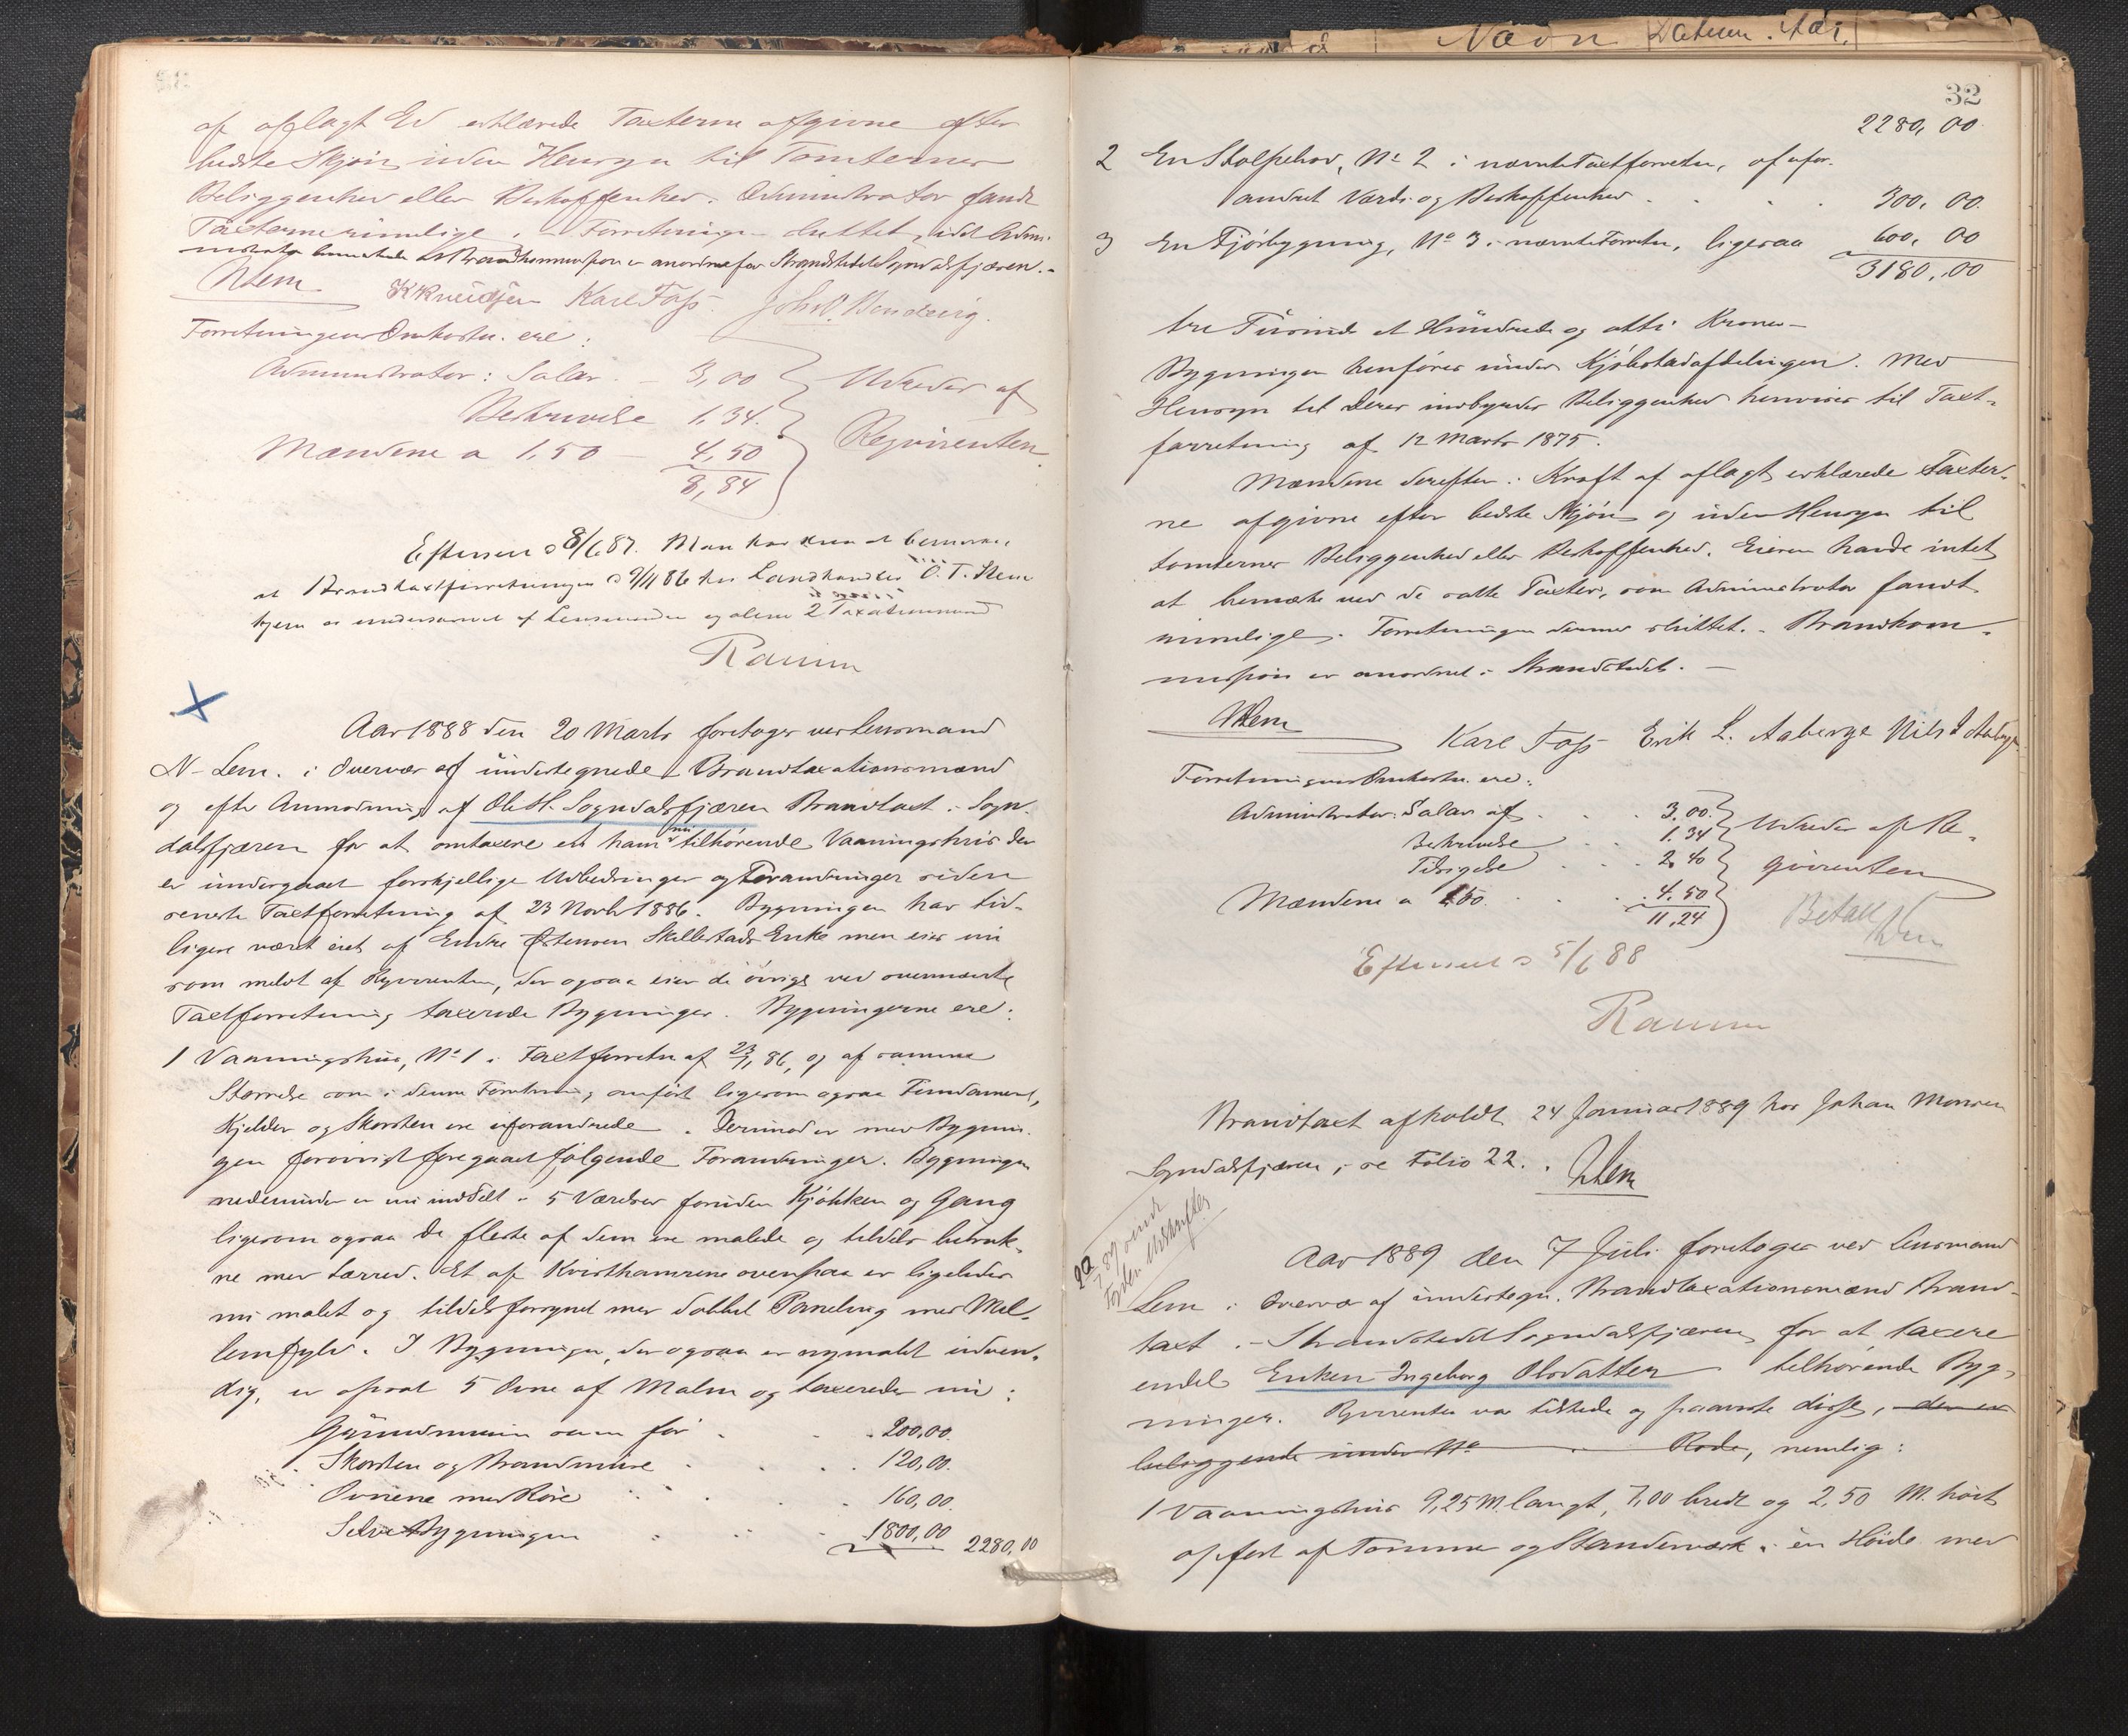 af aflagt Ed erklærede Taxterne afgivne efter
bedste Skjøn uden Hensyn til Tomternes
Beliggenhed eller Beskaffenhed. Administrator fandt
Taxterne rimelige. Forretningen sluttet, idet Admi-
nistrator bemærkede at Brandkommission er anordnet for Strandstedet Sogndalsfjæren.-
NLem KKnudsen Karl Foss Joh. Henderig.
Forretningens Omkostn. ere:
Administrator: Salær - 3,00
Beskrivelse 1,34.
Mændene a 1,50 - 4,50
8,84
Udredes af
Reqvirenten.
Efterseet d 8/6 87. Man har kun at bemærke,
at Brandtaxtforretningen d 9/11 86 hos Landhandler O. T. Stein
hjem er underskrevet af Lensmanden og alene 2 Taxationsmænd
Ramm
Aar 1888 den 20 Marts foretoges ved Lensmand
N. Lem. i Overvær af undertegnede Brandtaxationsmænd
og efter Anmodning af Ole H. Sogndalsfjæren Brandtaxt i Sogn-
dalsfjæren for at omtaxere et ham nu tilhørende Vaaningshus der
er undergaaet forskjellige Udbedringer og Forandringer siden
seneste Taxtforretning af 23 Novbr 1886. Bygningen har tid-
ligere været eiet af Endre Østensen Skjellestads Enke men eies nu
som meldt af Reqvirenten, der ogsaa eier de øvrige ved ovennævnte
Taxtforretning taxerede Bygninger. Bygningerne ere:
1 Vaaningshus, No 1 i Taxtforretn af 23/11 86, og af samme
Størrelse som i denne Forretning anført ligesom ogsaa Fundament,
Kjelder og Skorsten ere uforandrede. Derimod er med Bygnin-
gen forøvrigt foregaaet følgende Forandringer. Bygningen
nedenunder er nu inddelt i 5 Værelser foruden Kjøkken og Gang
ligesom ogsaa de fleste af dem ere malede og tildels betruk-
ne med Lærred. Et af Kvisthamrene ovenpaa er ligeledes
nu malet og tildels forsynet med dobbel Paneling med Mel-
lemfyld. I Bygningen, der ogsaa er nymalet udven-
dig, er opsat 5 Ovne af Malm og taxeredes nu:
Grundmuren som før . . 200,00.
Skorsten og Brandmure . . . 120,00.
Ovnene med Rør . . . 160,00.
Selve Bygningen . . . 1800,00 2280,00
32
2280,00.
2 En Stolpebod, No 2 i nævnte Taxtforretn, af ufor-
andret Værdi og Beskaffenhed . . . 300,00.
3 En Fjøsbygning, No 3 i nævnte Forretn, ligesaa 600,00
3180,00
tre Tusinde et Hundrede og otti Kroner-
Bygningen henføres under Kjøbstadafdelingen. Med
Hensyn til deres indbyrdes Beliggenhed henvises til Taxt-
forretning af 12 Marts 1875.
Mændene derefter i Kraft af aflagt erklærede Taxter-
ne afgivne efter bedste Skjøn og uden Hensyn til
tomternes Beliggenhed eller Beskaffenhed. Eieren havde intet
at bemærke ved de satte Taxter, som Administrator fandt
rimelige. Forretningen dermed sluttet. - Brandkom-
mission er anordnet i Strandstedet. -
NLem
Karl Foss Erik L. Aaberge Nils I Aaberge
Forretningens Omkostn. ere:
Administrator: Salær af . . . 3,00.
Beskrivelse . . 1,34
Tilsigelse . . . 2,40
Mændene a 1,50. . . . 4,50
11,24
Udredes af Re-
qvirenten
Betalt NLem
Efterseet d 5/6 88
Ramm
Brandtaxt afholdt 24 Januar 1889 hos Johan Monsen
Sogndalsfjæren, se Folio 22. NLem
Aar 1889 den 7 Juli foretoges ved Lensmand
Lem i Overvær af undertegn. Brandtaxationsmænd Brand-
taxt i Strandstedet Sogndalsfjæren for at taxere
endel Enken Ingeborg Olsdatter tilhørende Byg-
ninger. Reqvirenten var tilstede og paaviste disse, der er
beliggende under No Rode, nemlig:
1 Vaaningshus 9,25 M. langt, 7,00 bredt og 2,50 M. høit
opført af Tømmer og Standerværk i èn Høide med
Navn Datum. Aar.